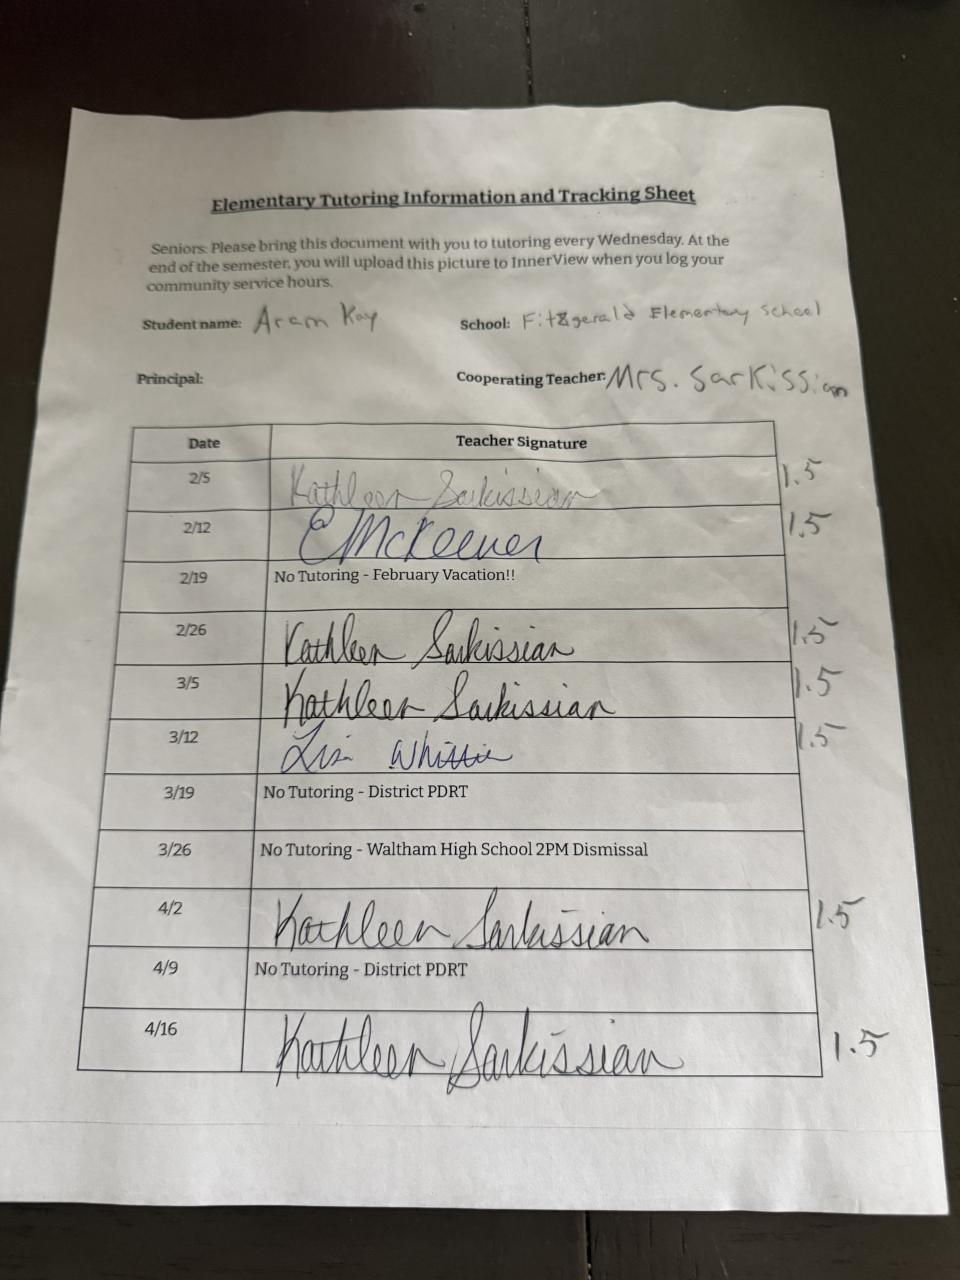 Elementary Tutoring Information and Tracking Sheet
Seniors: Please bring this document with you to tutoring every Wednesday. At the
end of the semester, you will upload this picture to InnerView when you log your
community service hours.
Student name: Aram Kay School: Fitzgerald Elementary School
Principal: Cooperating Teacher: Mrs. Sarkissian
Date Teacher Signature
2/5 Kathleen Sarkissian 1.5
2/12 CMcKeever 1.5
2/19 No Tutoring - February Vacation!!
2/26 Kathleen Sarkissian 1.5
3/5 Kathleen Sarkissian 1.5
3/12 1.5
3/19 No Tutoring - District PDRT
3/26 No Tutoring - Waltham High School 2PM Dismissal
4/2 Kathleen Sarkissian 1.5
4/9 No Tutoring - District PDRT
4/16 Kathleen Sarkissian 1.5